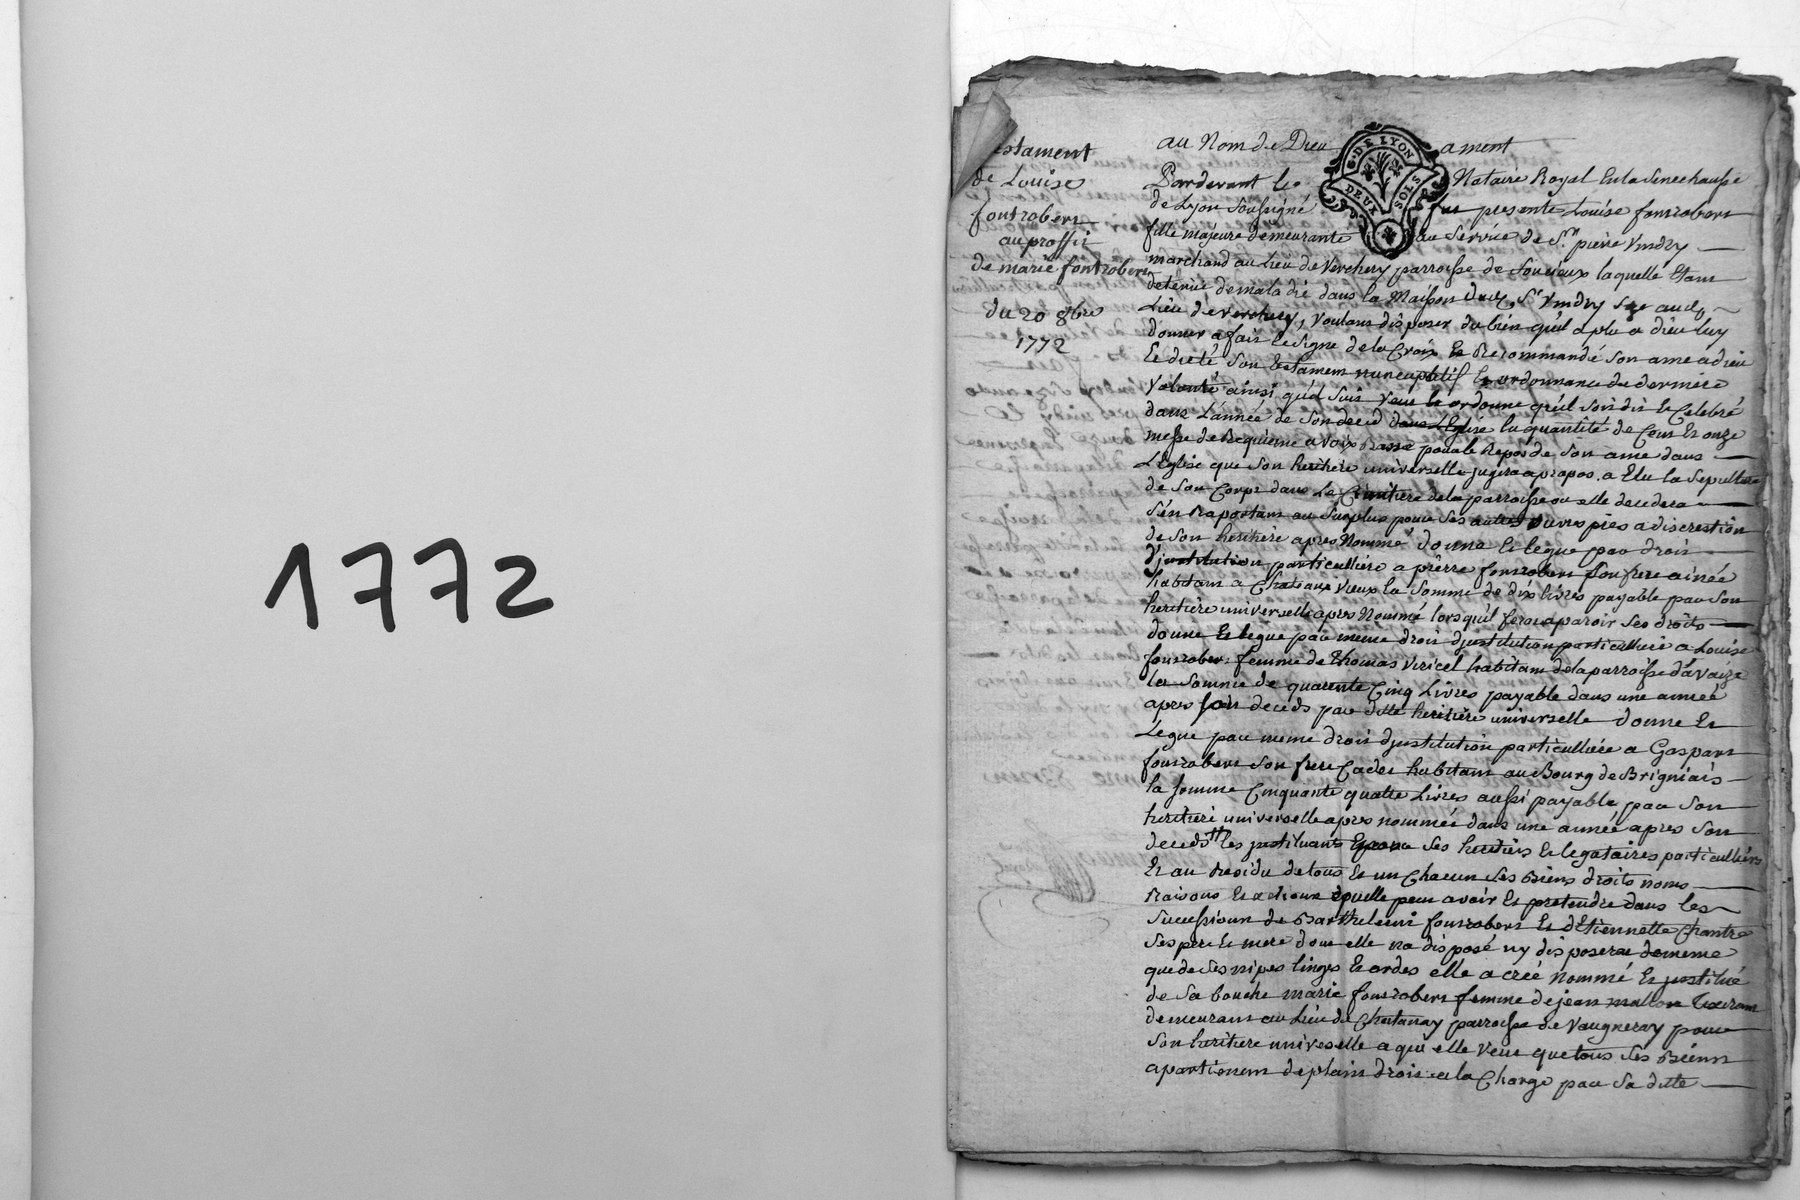 1772
estament
de Louise
fontrobert
au proffit
de marie fontrobert
du 20 9bre
1772
au Nom de Dieu ament
G. DE LYON
DEUX SOLS
Pardevant le Notaire Royal En la Senechaussé
de Lyon Soussigné fut presente Louise fontrobert
fille majeure demeurante au Service de Sr. pierre Vmdry
marchand au Lieu de Verchery parroisse de Soucieux laquelle Etant
detenüe de maladie dans la Maison dud. Sr Vmdry Size aud.
Lieu de Verchery, Voulant disposer du bien qu'il a plu a dieu luy
donner a fait le Signe de la Croix Et Recommandé Son ame a dieu
Et dicté Son testament nuncupatif Et ordonnance de derniere
Volonté ainsi qu'il Suit Veut Et ordonne qu'il Soit dit Et Celebré
dans L'année de Son deced dans L'Eglise la quantité de Cent Et onze
messe de Requieme a voix Basse pour le Repos de Son ame dans
L'Eglise que Son heritiere universelle jugera apropos. a Elu la Sepulture
de Son Corps dans Le Cimitiere de la parroisse ou elle decedera
S'en Raportant au Surplus pour Ses autres œuvres pies a discrestion
de Son heritiere apres Nommé donne Et legue par droit
d'jnstitution particulliere a pierre fontrobert Son frere ainée
habitant a Chateaux vieux la Somme de dix livres payable par Son
heritiere universelle apres Nommé lorsqu'il fera aparoir Ses droits
donne Et legue par meme droit d'jnstitution particulliere a Louise
fontrobert femme de Thomas Viricel habitant de la parroisse d'avaize
la Somme de quarente Cinq Livres payable dans une année
apres Son deceds par ditte heritiere universelle donne Et
Legue par meme droit d'jnstitution particulliere a Gaspart
fontrobert Son frere Cadet habitant au Bourg de Brigniais
la Somme Cinquante quatre Livres aussi payable par Son
heritiere universelle apres nommée dans une année apres Son
deceds les jnstituant Ses heritiers Et legataires particulliers
Et au Residu de tous Et un Chacun Ses Biens droits noms
Raisons Et actions quelle peut avoir Et pretendre dans les
Successions de Barthelemi fontrobert Et d'Etiennette Chantre
Ses pere Et mere dont elle n'a disposé ny disposera de meme
que de Ses nipes linges Et ardes elle a créé nommé Et jnstitué
de Sa bouche marie fontrobert femme de jean mallon
demeurant au Lieu de Chatanay parroisse de Vaugneray pour
Son heritiere univeselle a qui elle Veut que tous Ses Biens
apartienent de plain droit a la Charge par Sa ditte